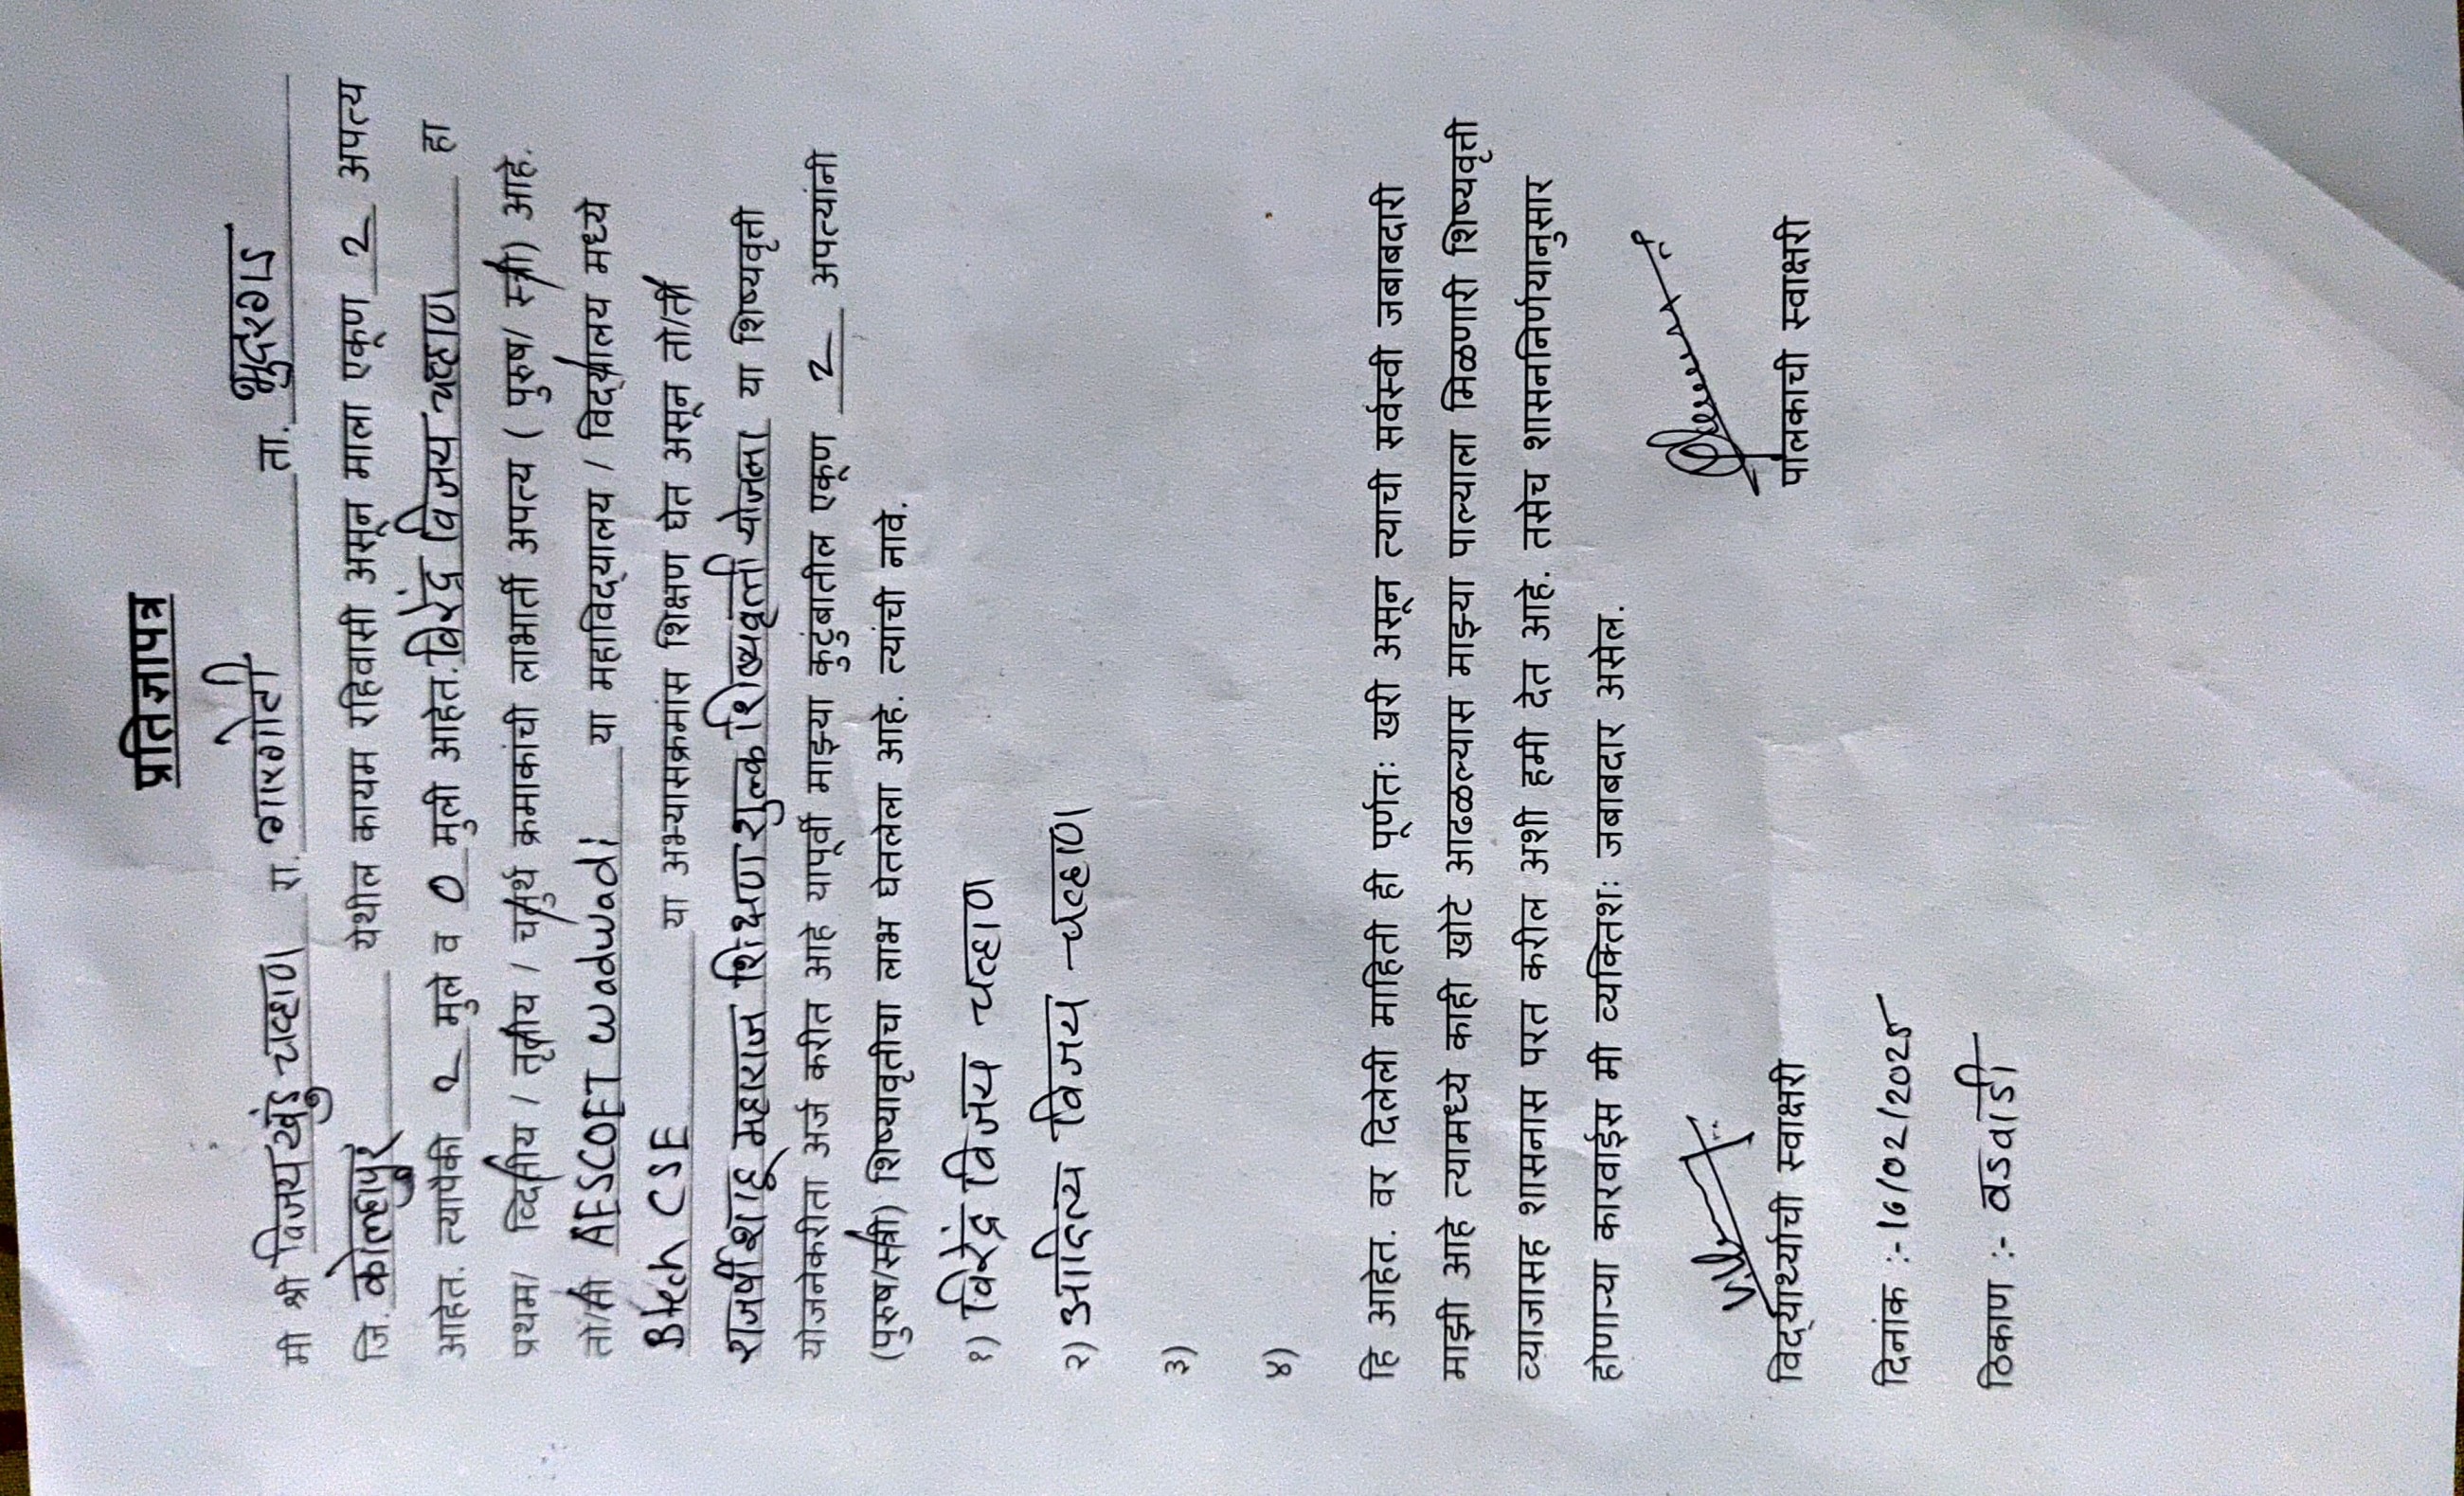 प्रतिज्ञापत्र
मी श्री विजय खंडु चव्हाण रा. गारगोटी ता. भुदरगड
जि. कोल्हापुर येथील कायम रहिवासी असून माला एकूण 2 अपत्य
आहेत. त्यापैकी २ मुले व 0 मुली आहेत. विरेंद्र विजय चव्हाण हा
प्रथम/ व्दितीय / तृतीय / चतुर्थ क्रमाकांची लाभार्ती अपत्य ( पुरुष/ स्त्री) आहे.
तो/ती AESCOET Wadwadi या महाविद्यालय / विद्यालय मध्ये
Btech CSE या अभ्यासक्रमांस शिक्षण घेत असून तो/ती
राजर्षी शाहू महाराज शिक्षण शुल्क शिष्यवृत्ती योजना या शिष्यवृत्ती
योजनेकरीता अर्ज करीत आहे यापूर्वी माझ्या कुटुंबातील एकूण 2 अपत्यांनी
(पुरुष/स्त्री) शिष्यावृतीचा लाभ घेतलेला आहे. त्यांची नावे.
१) विरेंद्र विजय चव्हाण
२) आदित्य विजय चव्हाण
३)
४)
हि आहेत. वर दिलेली माहिती ही पूर्णतः खरी असून त्याची सर्वस्वी जबाबदारी
माझी आहे त्यामध्ये काही खोटे आढळल्यास माझ्या पाल्याला मिळणारी शिष्यवृत्ती
व्याजासह शासनास परत करील अशी हमी देत आहे. तसेच शासननिर्णयानुसार
होणाऱ्या कारवाईस मी व्यक्तिशः जबाबदार असेल.
विद्यार्थ्याची स्वाक्षरी पालकाची स्वाक्षरी
दिनांक :- 16/02/2025
ठिकाण :- वडवाडी